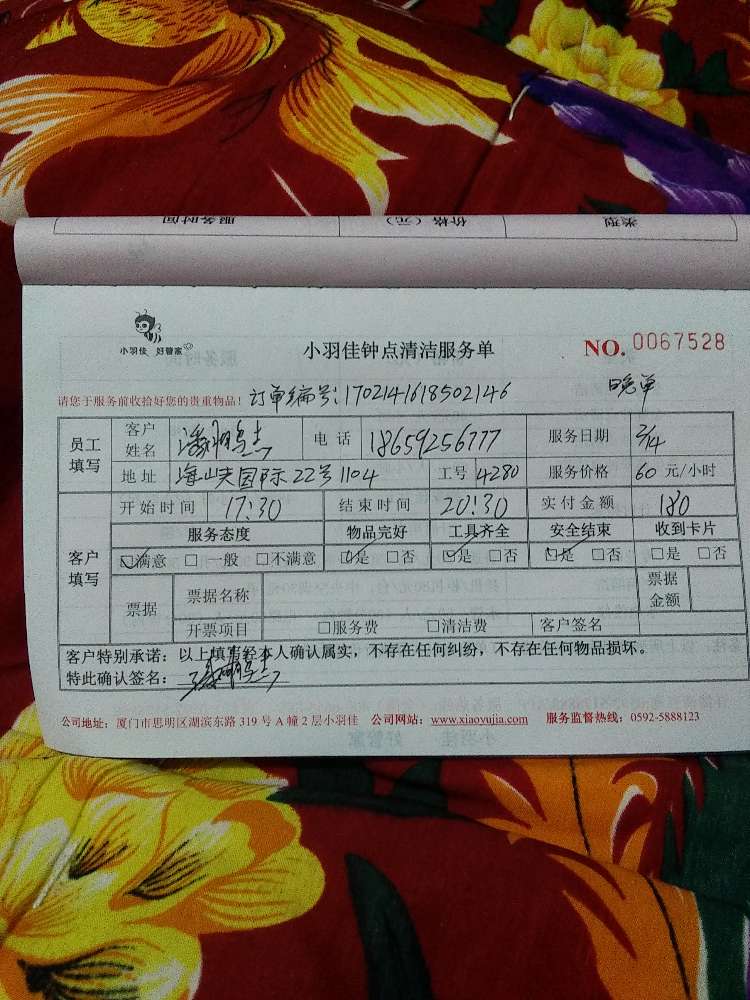 服务时间 价格（元） 类型
小羽佳 好管家 小羽佳钟点清洁服务单 NO. 0067528
请您于服务前收拾好您的贵重物品！ 订单编号:1702141618502146 晚单
员工填写 客户姓名 电话 18659256777 服务日期 2/14
地址 22号1104 工号 4280 服务价格 60 元/小时
客户填写 开始时间 17:30 结束时间 20:30 实付金额 180
服务态度 物品完好 工具齐全 安全结束 收到卡片
☑满意 □一般 □不满意 ☑是 □否 ☑是 □否 ☑是 □否 □是 □否
票据 票据名称 票据金额
开票项目 □服务费 □清洁费 客户签名
客户特别承诺：以上填写经本人确认属实，不存在任何纠纷，不存在任何物品损坏。
特此确认签名：
公司地址：厦门市思明区湖滨东路 319 号 A 幢 2 层小羽佳 公司网站：www.xiaoyujia.com 服务监督热线：0592-5888123